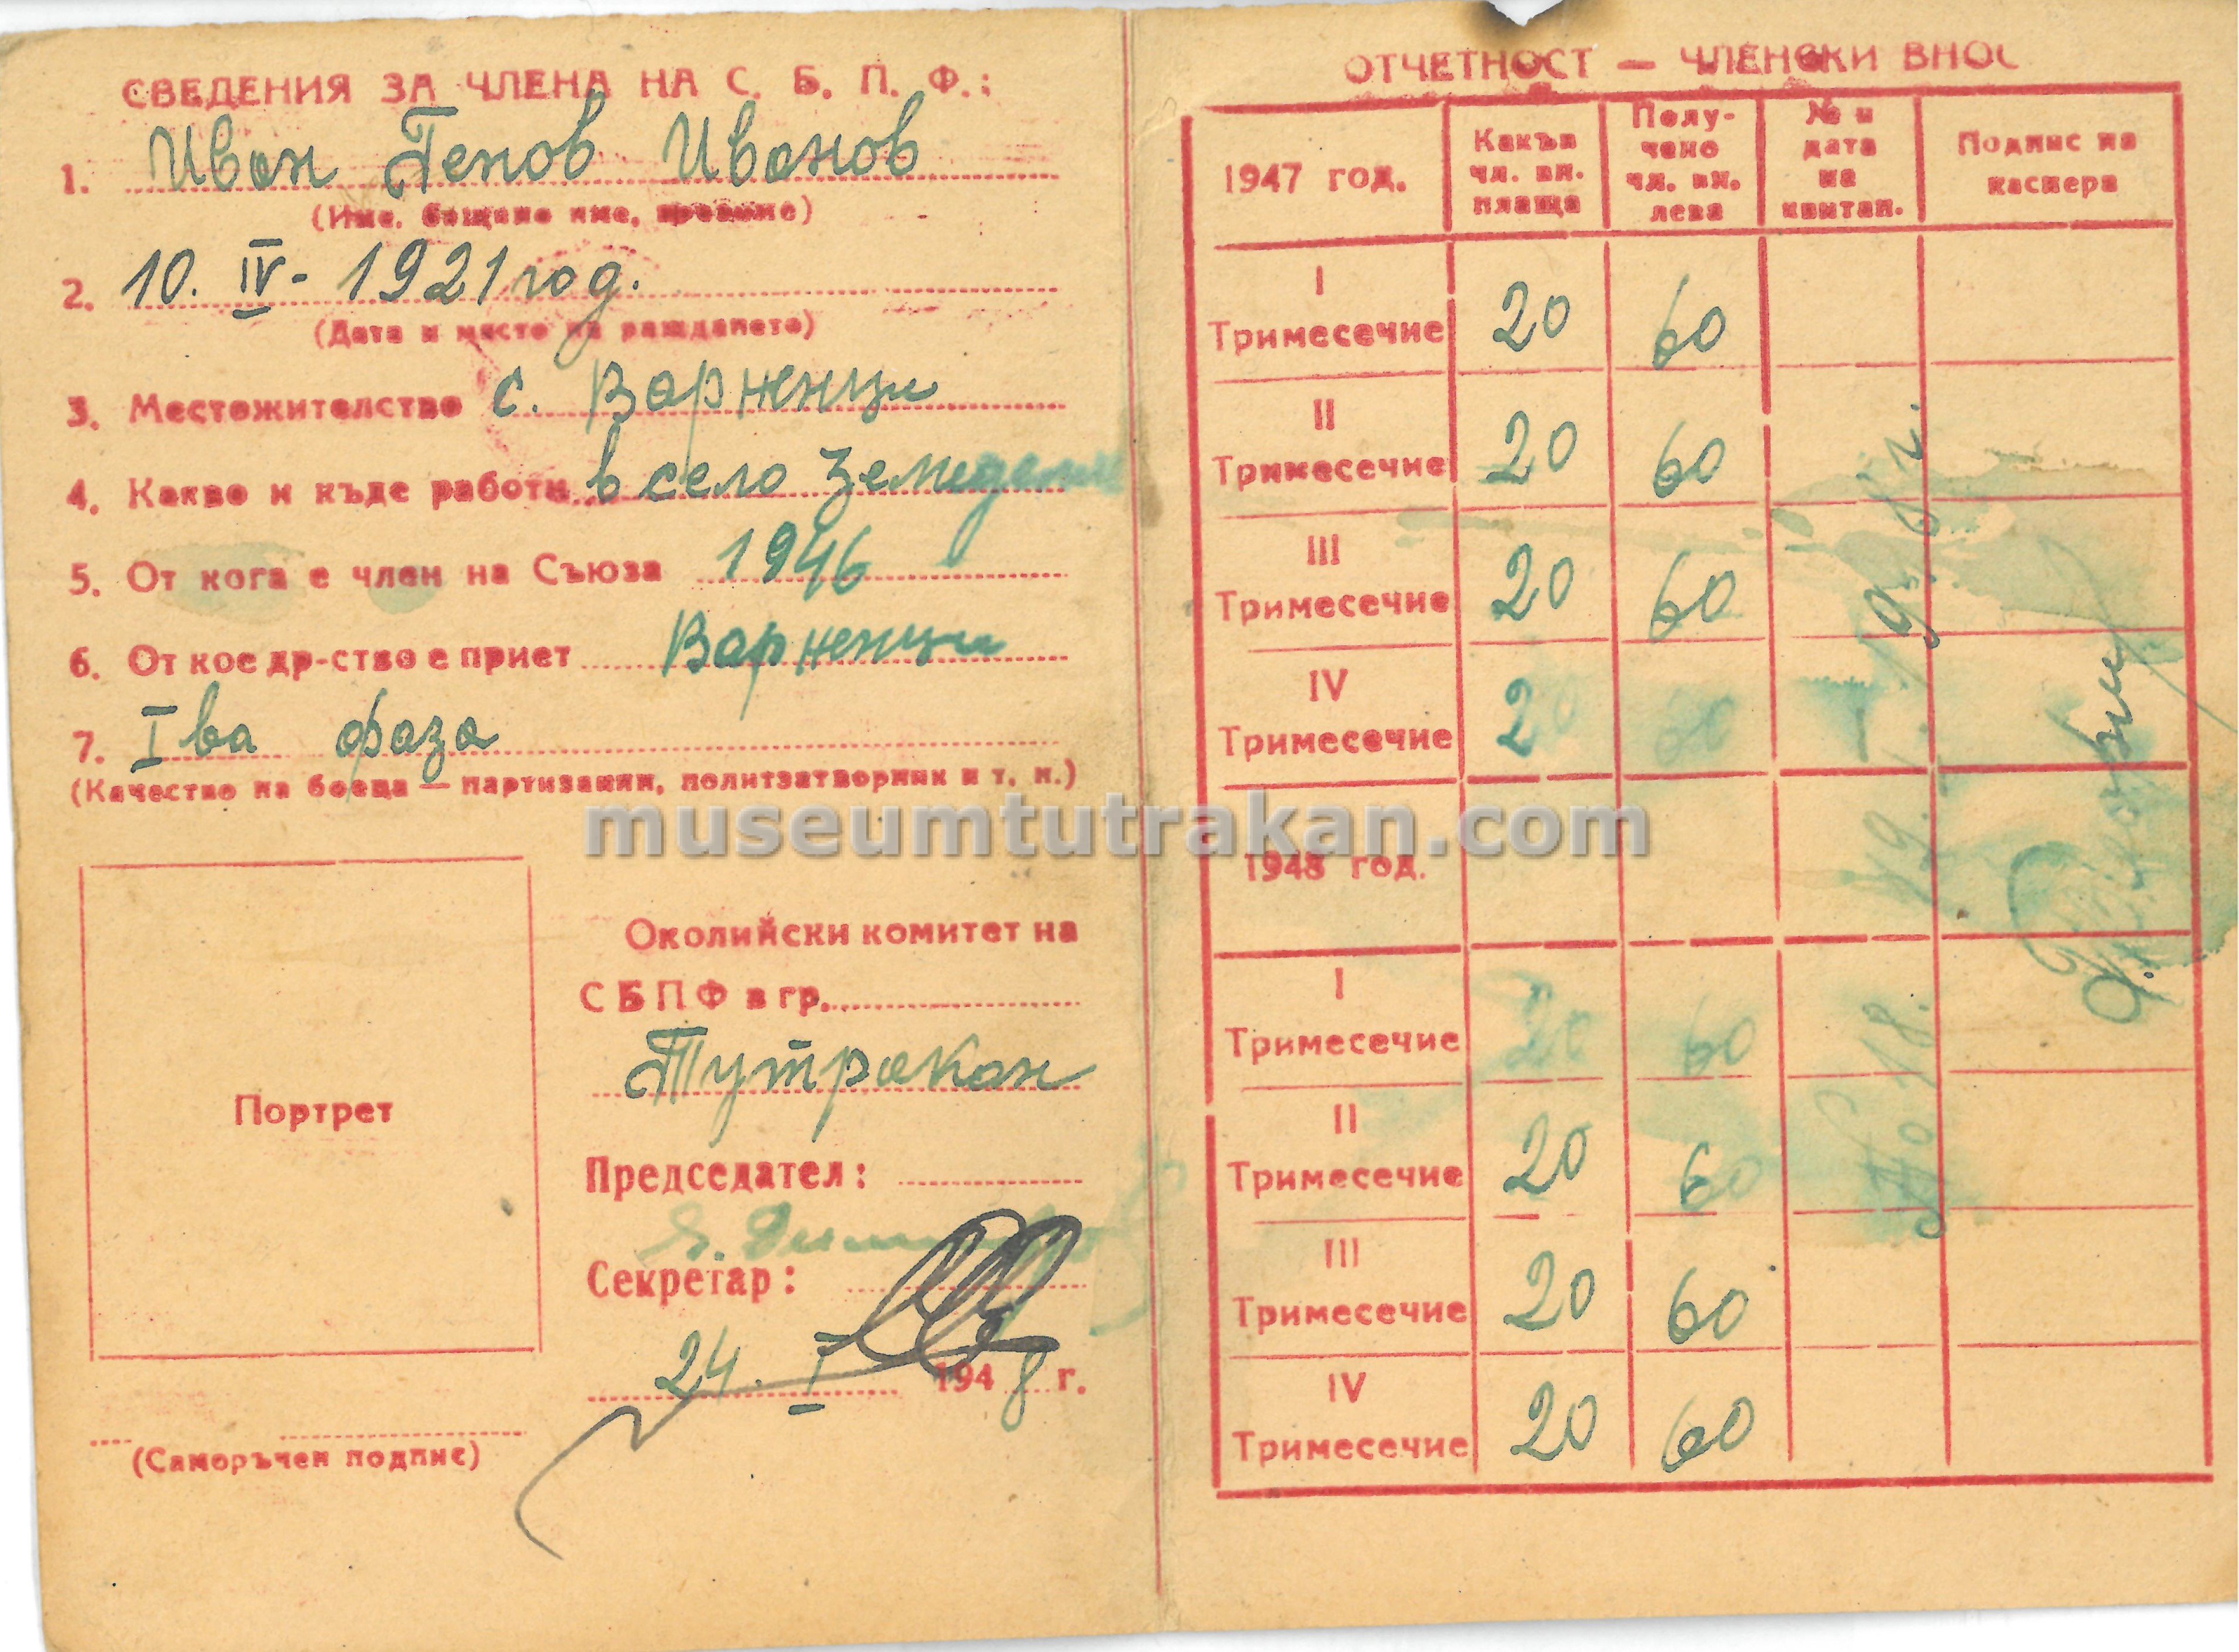 СВЕДЕНИЯ ЗА ЧЛЕНА НА С. Б. П. Ф.:
1. Иван Пенов Иванов
(Име, бащино име, презиме)
2. 10. IV - 1921 год.
(Дата и место на раждането)
3. Местожителство с. Варненци
4. Какво и къде работи в село Земеделие
5. От кога е член на Съюза 1946
6. От кое др-ство е приет Варненци
7. I ва фаза
(Качество на бореца — партизанин, политзатворник и т. н.)
Портрет
(Саморъчен подпис)
Околийски комитет на
СБПФ в гр.
Тутракан
Председател:
Секретар:
24. I 1948 г.
ОТЧЕТНОСТ — ЧЛЕНСКИ ВНОС
1947 год. Какъв чл. вн. плаща Полу-чено чл. вн. лева № и дата на квитан. Подпис на касиера
I Тримесечие 20 60
II Тримесечие 20 60
III Тримесечие 20 60
IV Тримесечие 20 60
1948 год.
I Тримесечие 20 60
II Тримесечие 20 60
III Тримесечие 20 60
IV Тримесечие 20 60
museumtutrakan.com